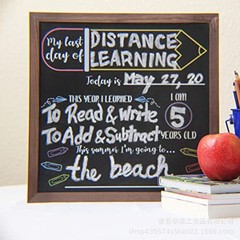 My last day of DISTANCE LEARNING
Today is May 27, 20
THIS YEAR I LEARNED
To Read & Write
To Add & Subtract
I AM
5
YEARS OLD
This summer I'm going to...
the beach